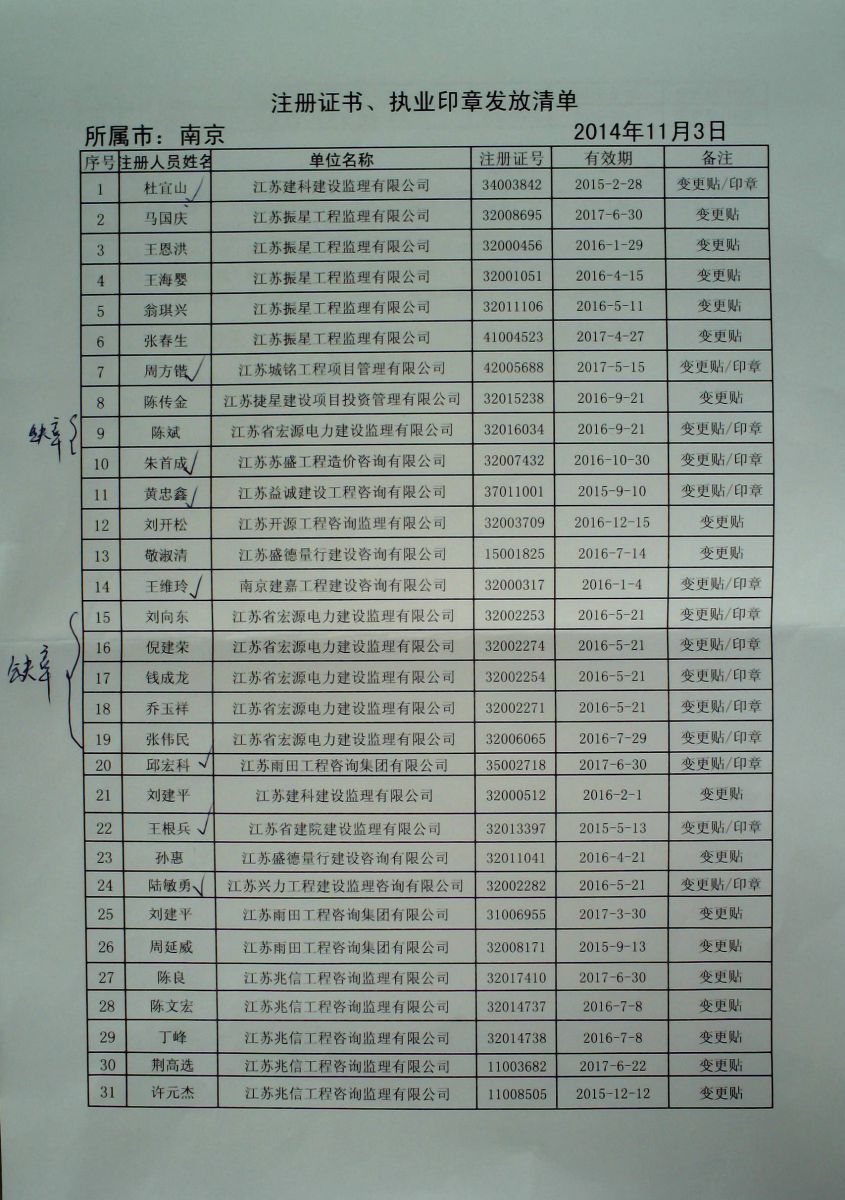 注册证书、执业印章发放清单
所属市：南京 2014年11月3日
序号 注册人员姓名 单位名称 注册证号 有效期 备注
1 杜宜山 江苏建科建设监理有限公司 34003842 2015-2-28 变更贴/印章
2 马国庆 江苏振星工程监理有限公司 32008695 2017-6-30 变更贴
3 王恩洪 江苏振星工程监理有限公司 32000456 2016-1-29 变更贴
4 王海婴 江苏振星工程监理有限公司 32001051 2016-4-15 变更贴
5 翁琪兴 江苏振星工程监理有限公司 32011106 2016-5-11 变更贴
6 张春生 江苏振星工程监理有限公司 41004523 2017-4-27 变更贴
7 周方锴 江苏城铭工程项目管理有限公司 42005688 2017-5-15 变更贴/印章
8 陈传金 江苏捷星建设项目投资管理有限公司 32015238 2016-9-21 变更贴
缺章
9 陈斌 江苏省宏源电力建设监理有限公司 32016034 2016-9-21 变更贴/印章
10 朱首成 江苏苏盛工程造价咨询有限公司 32007432 2016-10-30 变更贴/印章
11 黄忠鑫 江苏益诚建设工程咨询有限公司 37011001 2015-9-10 变更贴/印章
12 刘开松 江苏开源工程咨询监理有限公司 32003709 2016-12-15 变更贴
13 敬淑清 江苏盛德量行建设咨询有限公司 15001825 2016-7-14 变更贴
14 王维玲 南京建嘉工程建设咨询有限公司 32000317 2016-1-4 变更贴/印章
15 刘向东 江苏省宏源电力建设监理有限公司 32002253 2016-5-21 变更贴/印章
16 倪建荣 江苏省宏源电力建设监理有限公司 32002274 2016-5-21 变更贴/印章
缺章
17 钱成龙 江苏省宏源电力建设监理有限公司 32002254 2016-5-21 变更贴/印章
18 乔玉祥 江苏省宏源电力建设监理有限公司 32002271 2016-5-21 变更贴/印章
19 张伟民 江苏省宏源电力建设监理有限公司 32006065 2016-7-29 变更贴/印章
20 邱宏科 江苏雨田工程咨询集团有限公司 35002718 2017-6-30 变更贴/印章
21 刘建平 江苏建科建设监理有限公司 32000512 2016-2-1 变更贴
22 王根兵 江苏省建院建设监理有限公司 32013397 2015-5-13 变更贴/印章
23 孙惠 江苏盛德量行建设咨询有限公司 32011041 2016-4-21 变更贴
24 陆敏勇 江苏兴力工程建设监理咨询有限公司 32002282 2016-5-21 变更贴/印章
25 刘建平 江苏雨田工程咨询集团有限公司 31006955 2017-3-30 变更贴
26 周延威 江苏雨田工程咨询集团有限公司 32008171 2015-9-13 变更贴
27 陈良 江苏兆信工程咨询监理有限公司 32017410 2017-6-30 变更贴
28 陈文宏 江苏兆信工程咨询监理有限公司 32014737 2016-7-8 变更贴
29 丁峰 江苏兆信工程咨询监理有限公司 32014738 2016-7-8 变更贴
30 荆高选 江苏兆信工程咨询监理有限公司 11003682 2017-6-22 变更贴
31 许元杰 江苏兆信工程咨询监理有限公司 11008505 2015-12-12 变更贴